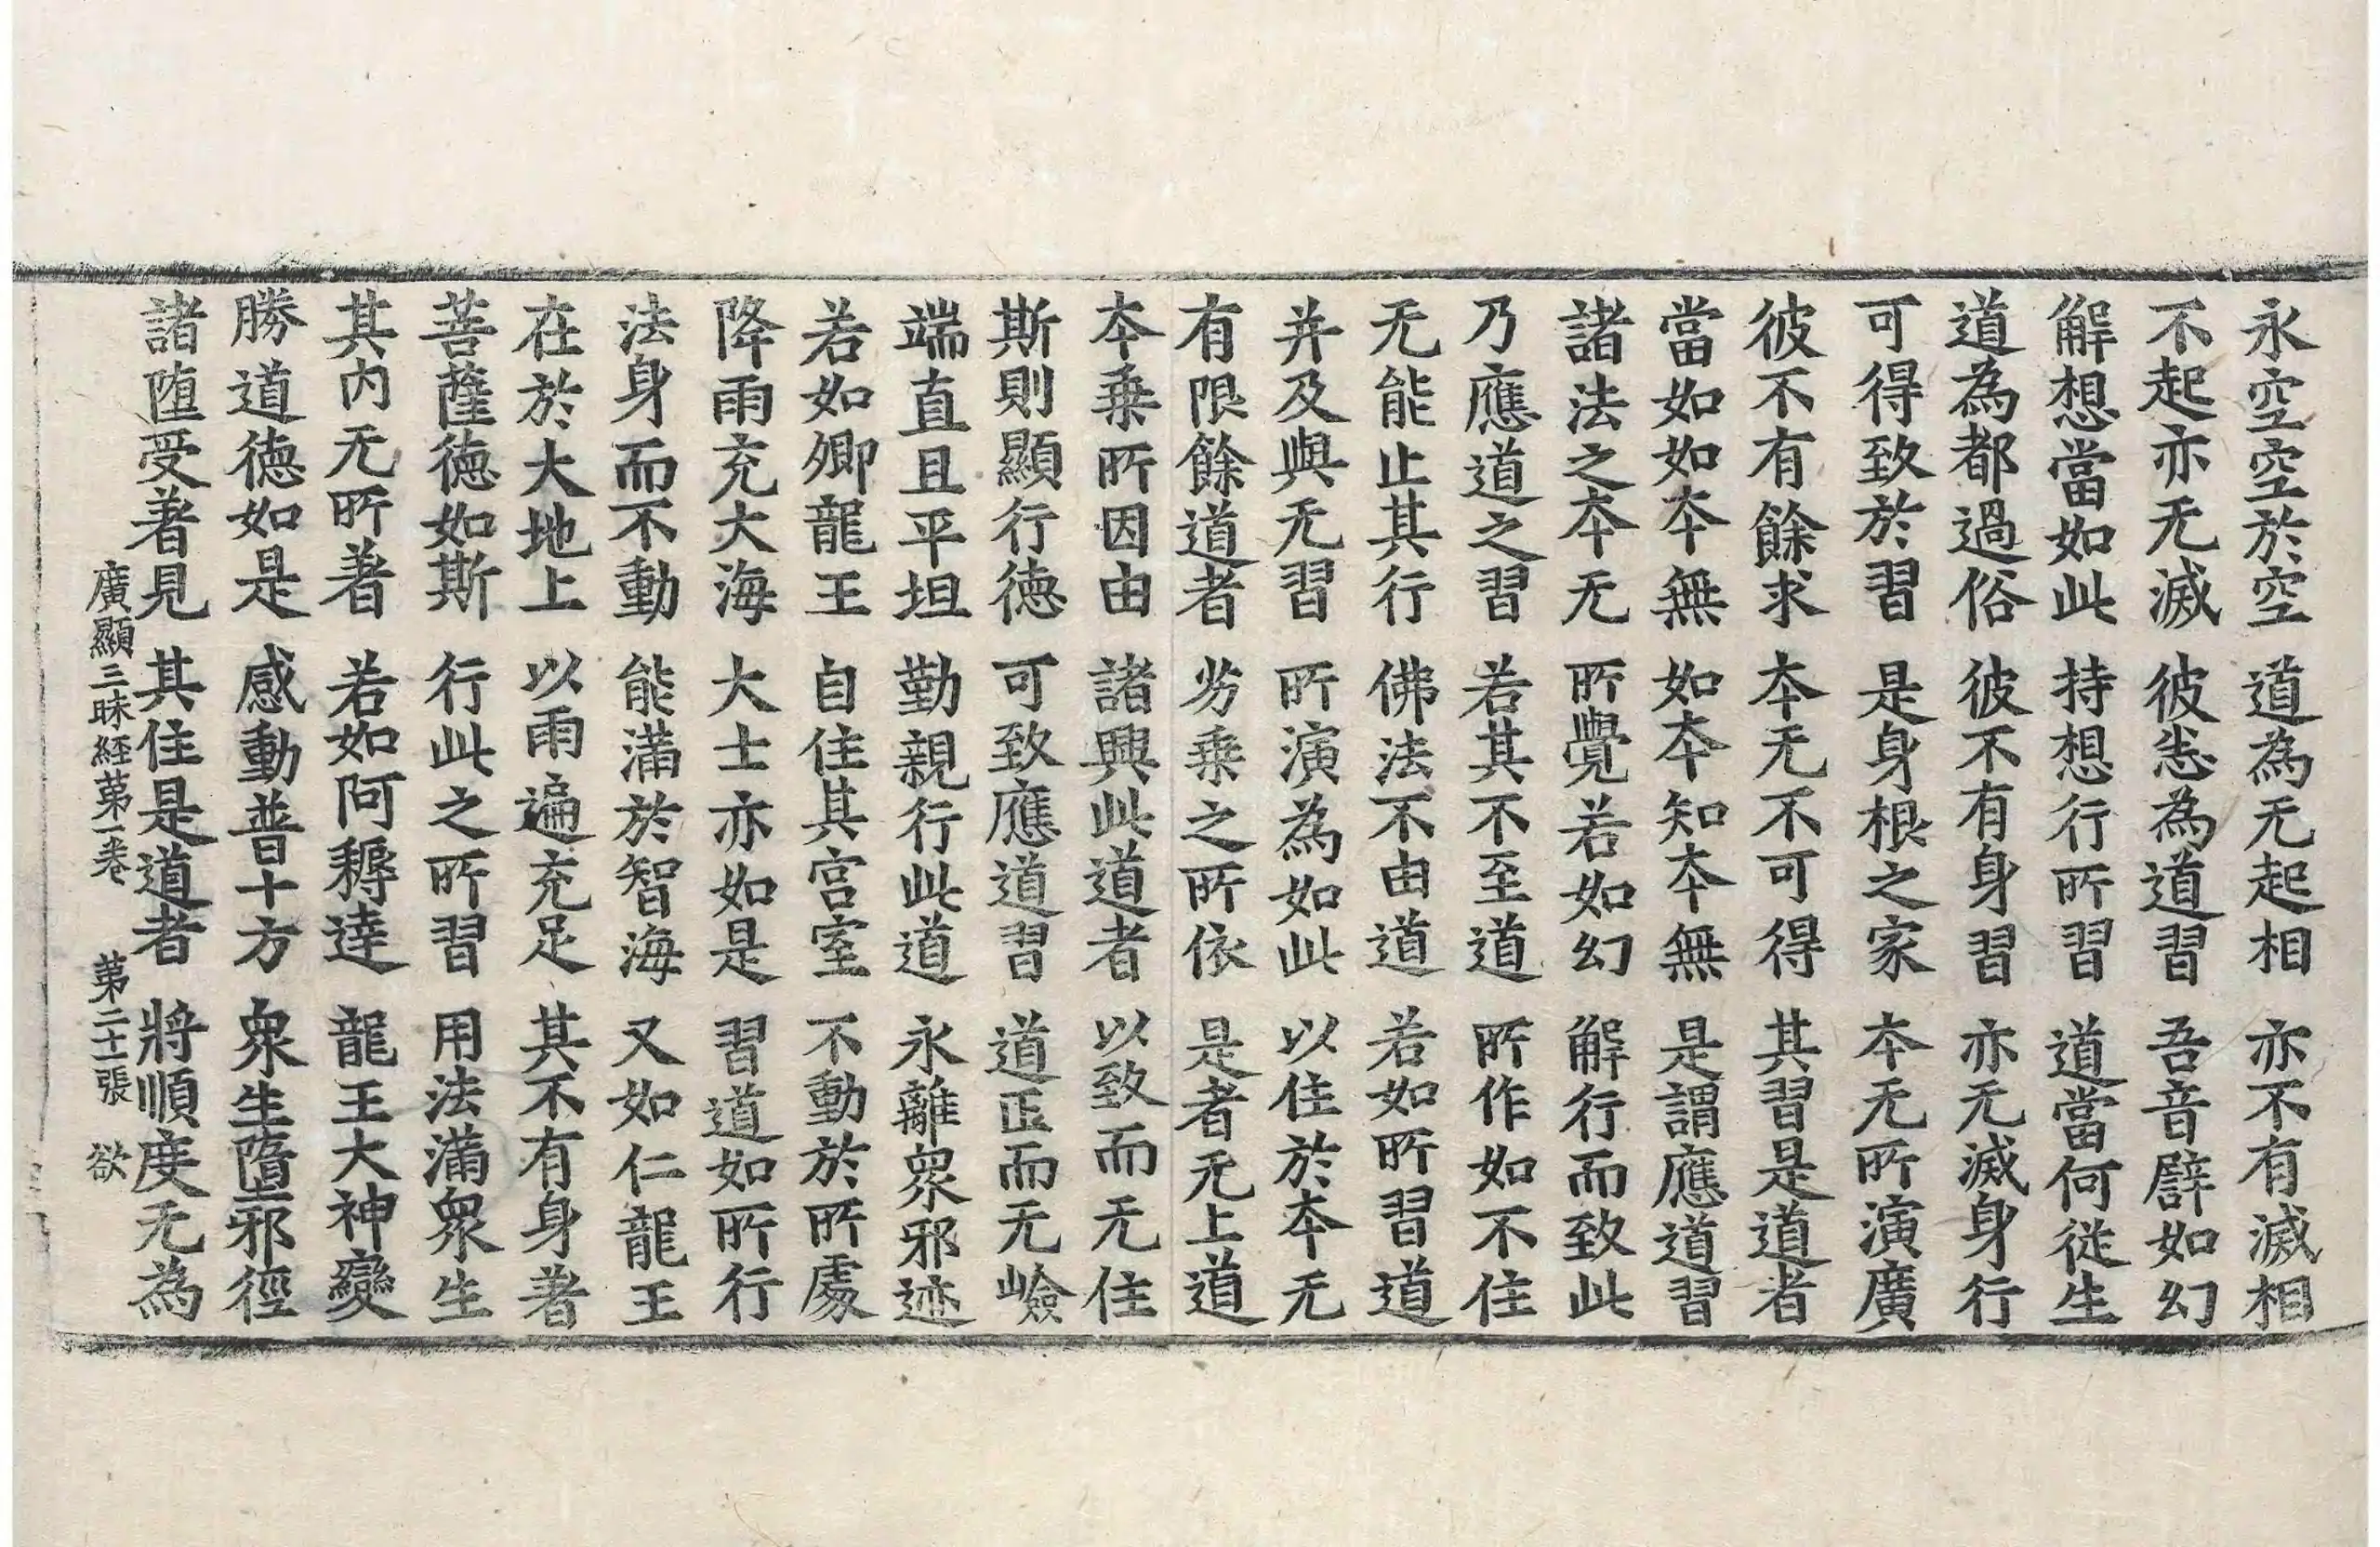 永空空於空 道為无起相 亦不有滅相
不起亦无滅 彼恙為道習 吾音譬如幻
解想當如此 持想行所習 道當何從生
道為都過俗 彼不有身習 亦无滅身行
可得致於習 是身根之家 本无所演廣
彼不有餘求 本无不可得 其習是道者
當如如本無 如本知本無 是謂應道習
諸法之本无 所覺若如幻 解行而致此
乃應道之習 若其不至道 所作如不住
无能止其行 佛法不由道 若如所習道
并及與无習 所演為如此 以住於本无
有限餘道者 劣乘之所依 是者无上道
本乘所因由 諸興此道者 以致而无住
斯則顯行德 可致應道習 道正而无嶮
端直且平坦 勤親行此道 永離衆邪迹
若如卿龍王 自住其宮室 不動於所處
降雨充大海 大士亦如是 習道如所行
法身而不動 能滿於智海 又如仁龍王
在於大地上 以雨遍充足 其不有身著
菩薩德如斯 行此之所習 用法滿衆生
其内无所著 若如阿耨達 龍王大神變
勝道德如是 感動普十方 衆生墮邪徑
諸堕受著見 其住是道者 將順度无為
廣顯三昧経苐一卷 苐二十一張 欲